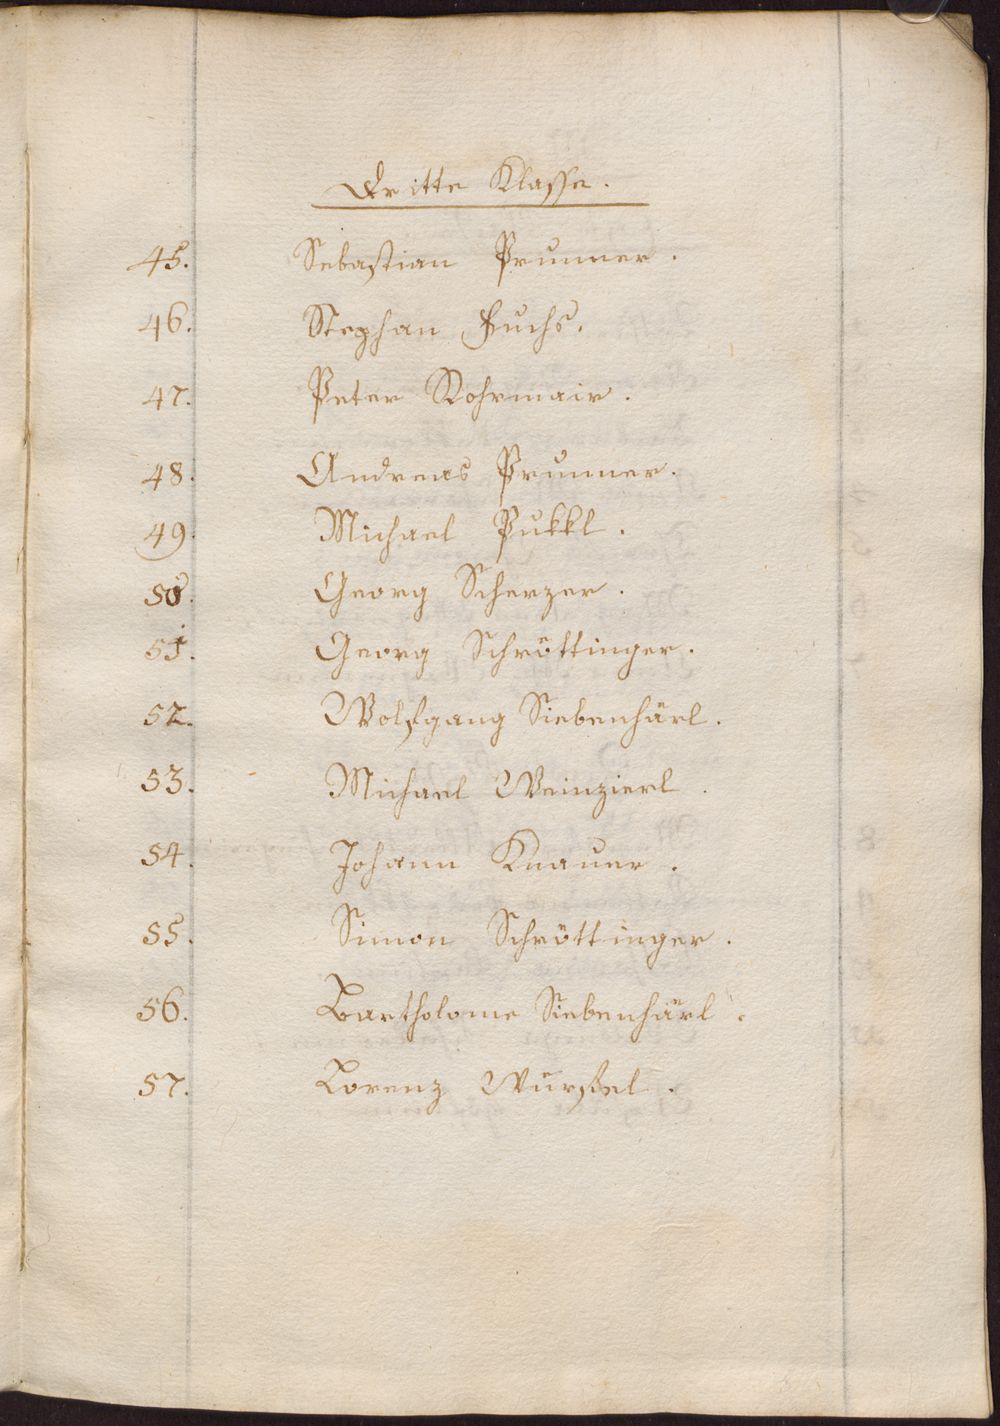 Dritte Klasse.
45. Sebastian Prunner.
46. Stephan Fuchs.
47. Peter Rohrmair.
48. Andreas Prunner.
49. Michael Pukkl.
50. Georg Scherzer.
51. Georg Schröttinger.
52. Wolfgang Siebenhärl.
53. Michael Weinzierl.
54. Johann Knauer.
55. Simon Schröttinger.
56. Bartholome Siebenhärl.
57. Lorenz Wurßel.